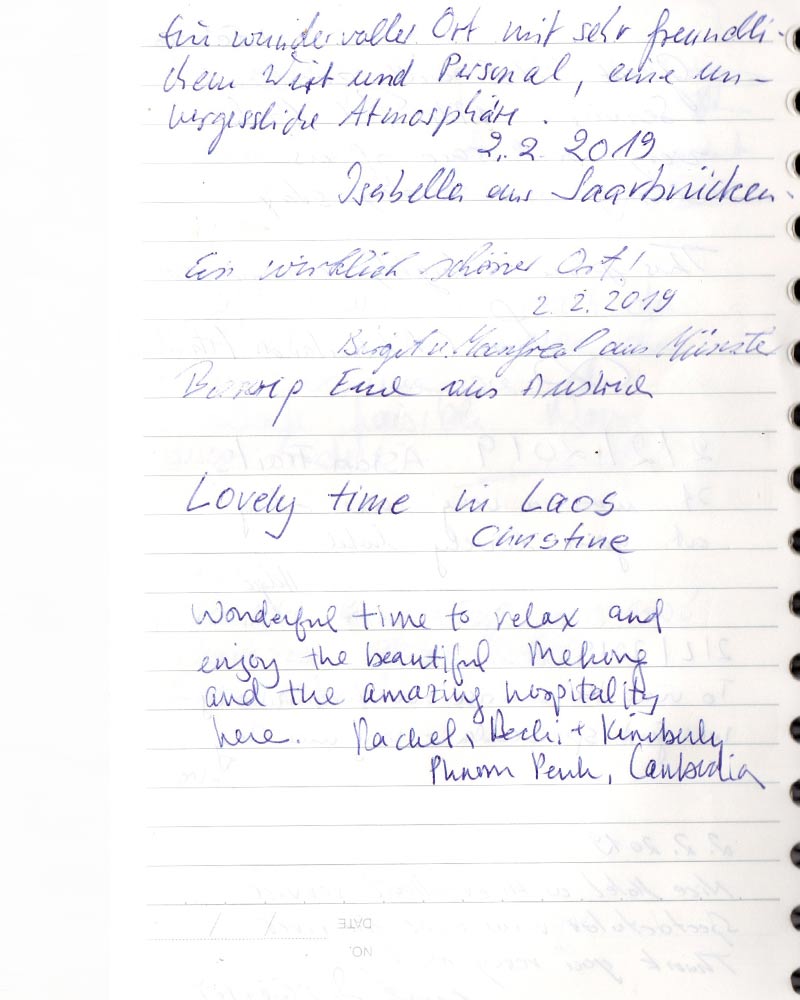 Ein wundervoller Ort mit sehr freundli-
chem Wirt und Personal, eine un-
vergessliche Atmosphäre.
2.2.2019
Isabella aus Saarbrücken.
Ein wirklich schöner Ort!
2.2.2019
Birgit u. Manfred aus Münster
aus Austria
Lovely time in Laos
Christine
Wonderful time to relax and
enjoy the beautiful Mekong
and the amazing hospitality
here. Rachel, + Kimberly
Phnom Penh, Cambodia
DATE
NO.